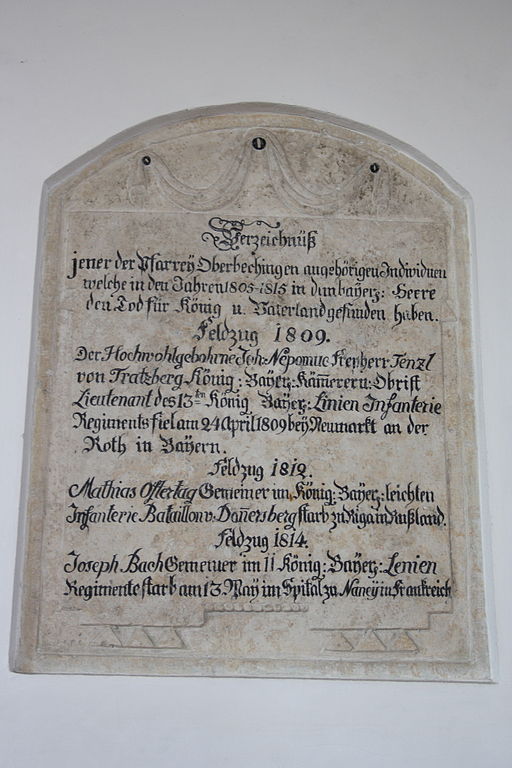 Verzeichnüß
jener der Pfarrey Oberbechingen angehörigen Individuen
welche in den Jahren 1805-1815 in dem bayer: Heere
den Tod für König u. Vaterland gefunden haben.
Feldzug 1809.
Der Hochwohlgebohrne Joh: Nepomuc Freyherr Tenzl
von Tratzberg König: Bayer: Kämerer u: Obrist
Lieutenant des 13ten König Bayer: Linien Infanterie
Regiments fiel am 24 April 1809 bey Neumarkt an der
Roth in Bayern.
Feldzug 1812.
Mathias Ostertag Gemeiner im König: Bayer: leichten
Infanterie Bataillon v. Dañersberg starb zu Riga in Rußland.
Feldzug 1814.
Joseph Bach Gemeiner im 11 König: Bayer: Lenien
Regimente starb am 13 May im Spital zu Nancy in Frankreich